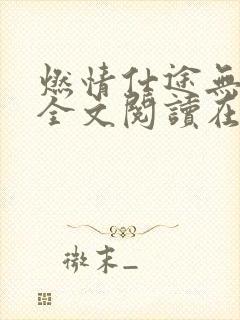 燃情仕途無
全文閱讀在
微末_